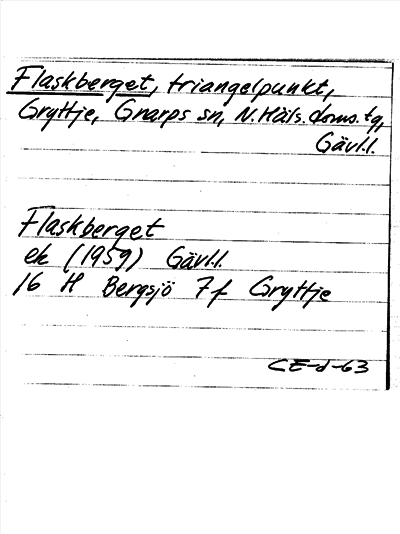 Flaskberget, triangelpunkt,
Gryttje, Gnarps sn, N.Häls. doms.tg,
Gävl.l.
Flaskberget
ek (1959) Gävl.l.
16 H Bergsjö 7f Gryttje
CE-d-63